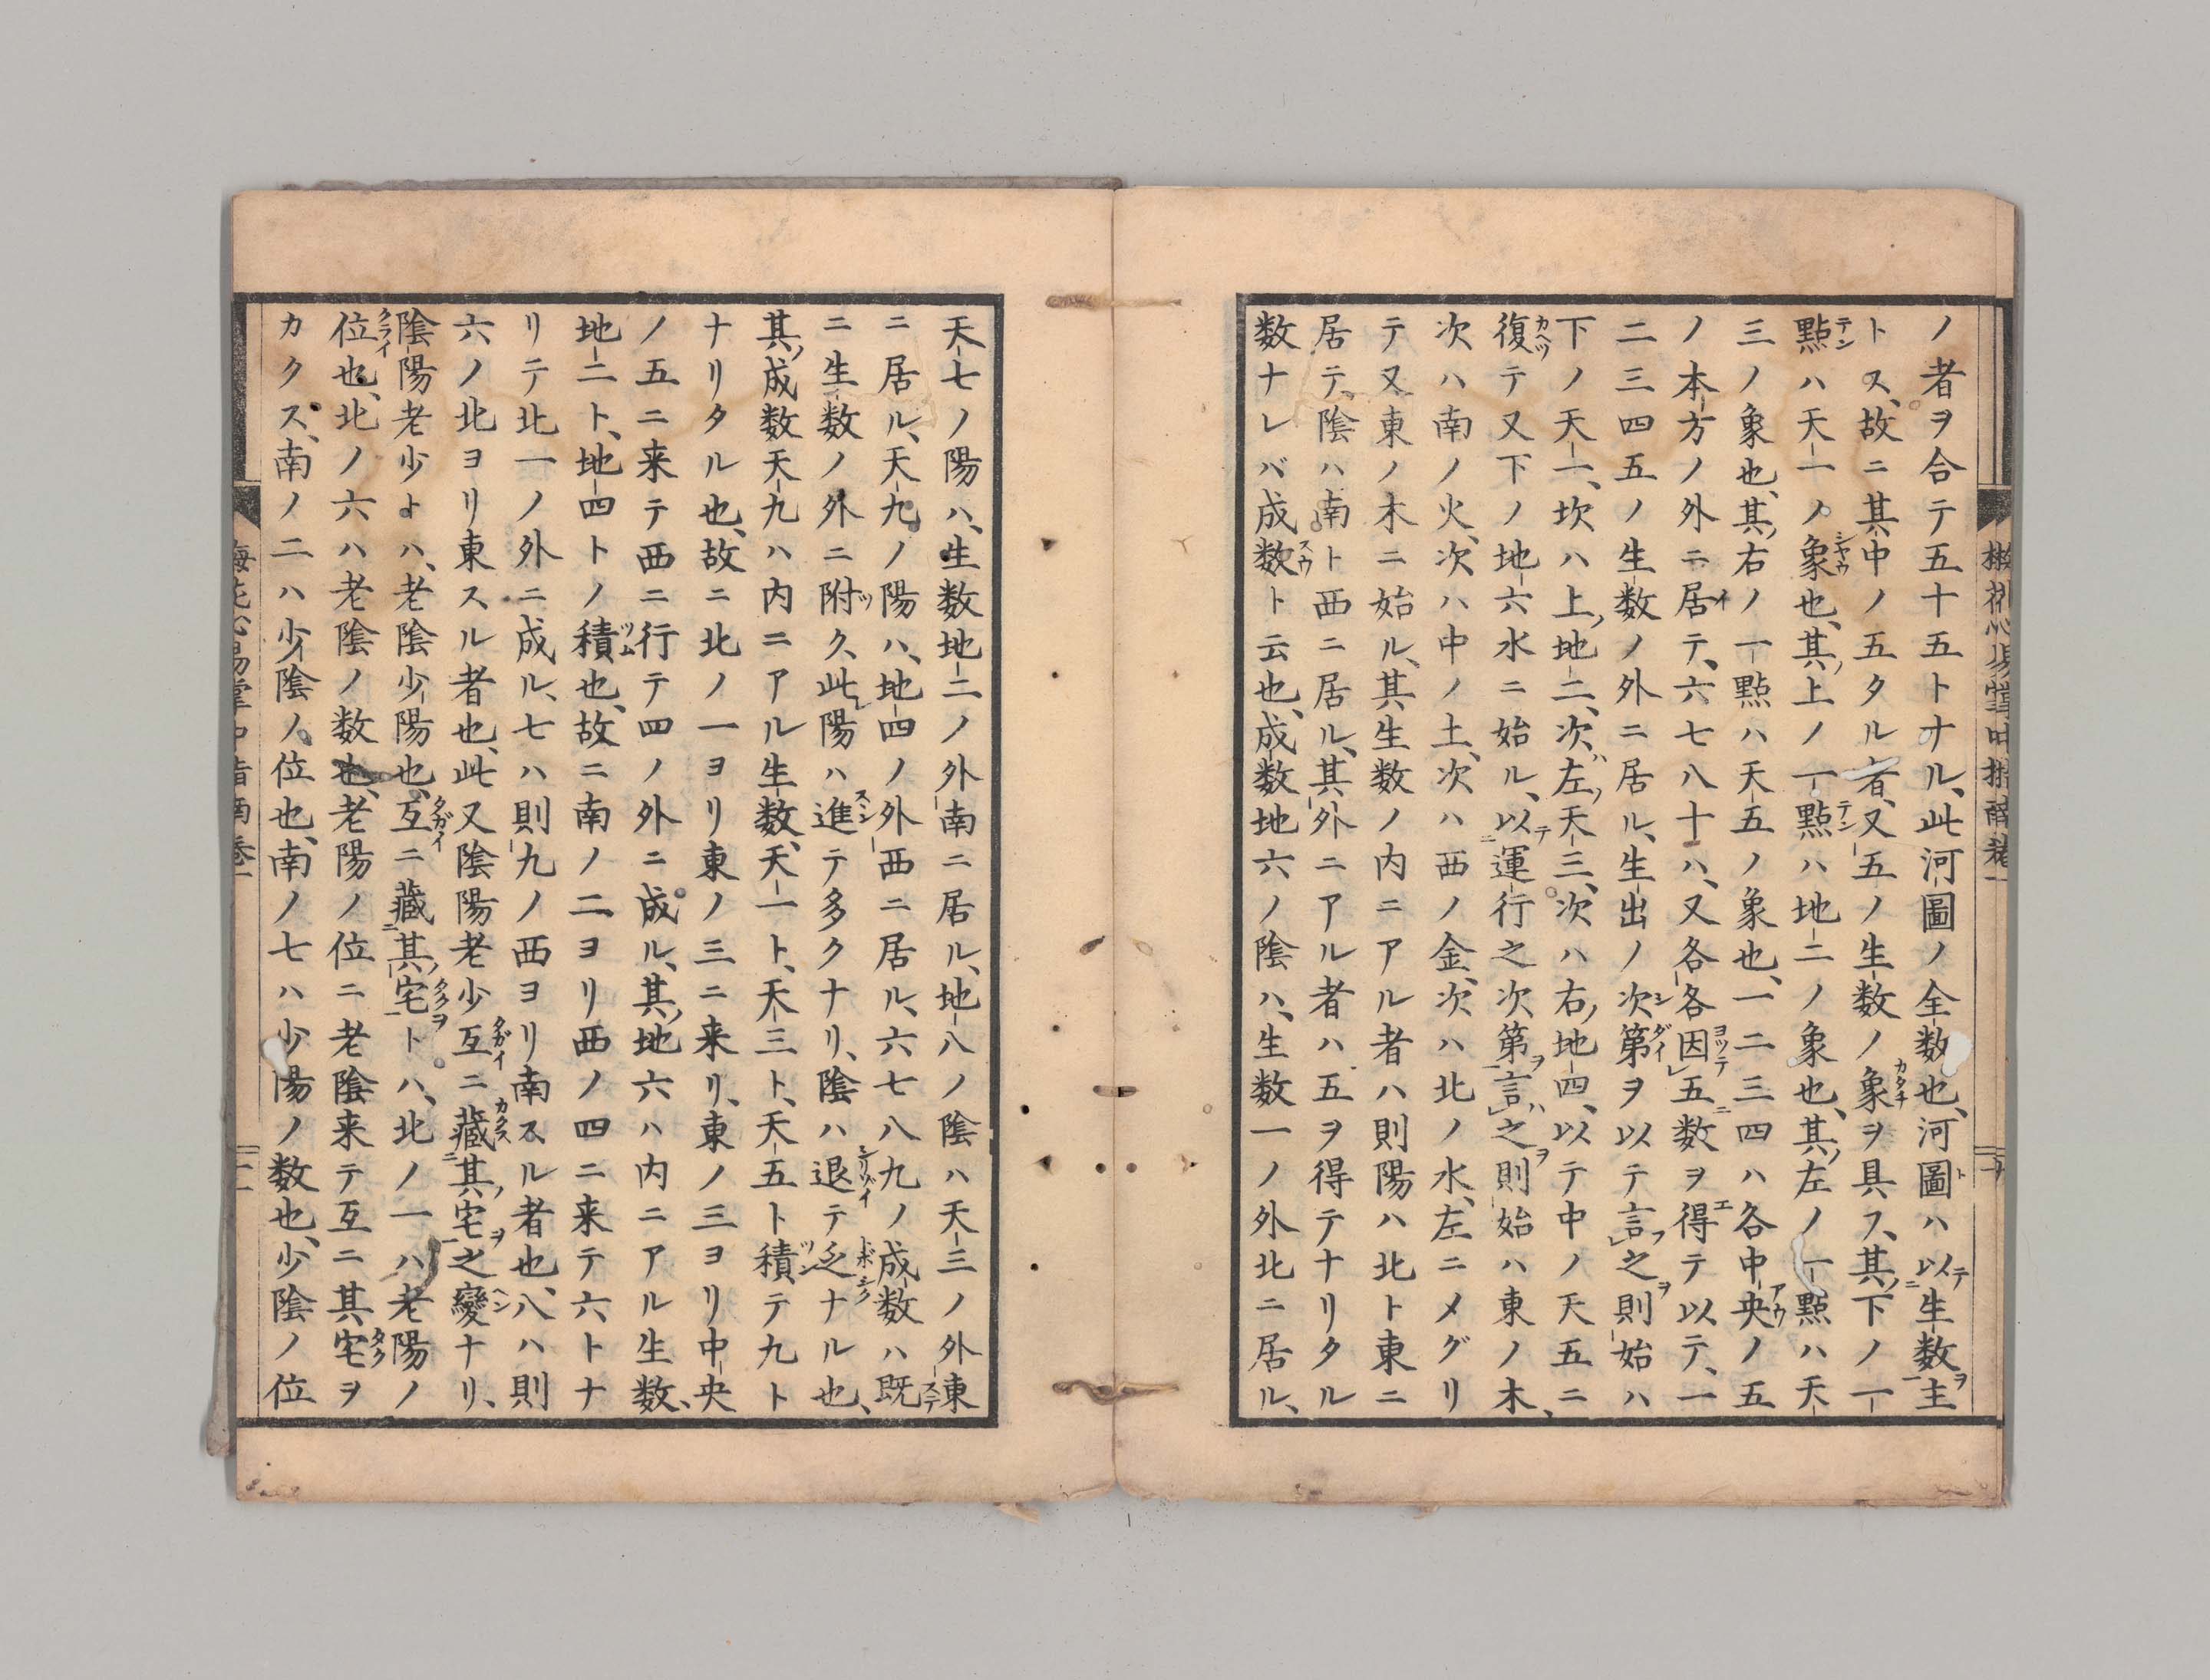 ノ者ヲ合テ五十五トナル、此河圖ノ全数也、河圖ハ以テ生数ヲ主
トス、故ニ其中ノ五タル者、又五ノ生数ノ象ヲ具フ、其ノ下ノ一
點ハ天一ノ象也、其ノ上ノ一點ハ地二ノ象也、其ノ左ノ一點ハ天
三ノ象也、其ノ右ノ一點ハ天五ノ象也、一二三四ハ各中央ノ五
ノ本方ノ外ニ居テ、六七八十ハ、又各各因五数ヲ得テ以テ、一
二三四五ノ生数ノ外ニ居ル、生出ノ次第ヲ以テ言フ之ヲ則始ハ
下ノ天一、坎ハ上ノ地二、次ハ左ノ天三、次ハ右ノ地四、以テ中ノ天五ニ
復テ又下ノ地六水ニ始ル、以テ運行之次第ヲ言ハ之ヲ則始ハ東ノ木、
次ハ南ノ火、次ハ中ノ土、次ハ西ノ金、次ハ北ノ水、左ニメグリ
テ又東ノ木ニ始ル、其生数ノ内ニアル者ハ則陽ハ北ト東ニ
居テ、陰ハ南ト西ニ居ル、其外ニアル者ハ五ヲ得テナリタル
数ナレバ成数ト云也、成数地六ノ陰ハ、生数一ノ外北ニ居ル、
天七ノ陽ハ、生数地二ノ外南ニ居ル、地八ノ陰ハ天三ノ外東
ニ居ル、天九ノ陽ハ、地四ノ外西ニ居ル、六七八九ノ成数ハ既
ニ生数ノ外ニ附ク、此陽ハ進テ多クナリ、陰ハ退テ乏ナル也、
其ノ成数天九ハ内ニアル生数、天一ト、天三ト、天五ト積テ九ト
ナリタル也、故ニ北ノ一ヨリ東ノ三ニ来リ、東ノ三ヨリ中央
ノ五ニ来テ西ニ行テ四ノ外ニ成ル、其ノ地六ハ内ニアル生数、
地二ト、地四トノ積也、故ニ南ノ二ヨリ西ノ四ニ来テ六トナ
リテ北一ノ外ニ成ル、七ハ則九ノ西ヨリ南スル者也、八ハ則
六ノ北ヨリ東スル者也、此又陰陽老少互ニ藏其ノ宅ヲ之變ナリ、
陰陽老少トハ、老陰少陽也、互ニ藏其ノ宅ヲトハ、北ノ一ハ老陽ノ
位也、北ノ六ハ老陰ノ数也、老陽ノ位ニ老陰来テ互ニ其宅ヲ
カクス、南ノ二ハ少陰ノ位也、南ノ七ハ少陽ノ数也、少陰ノ位